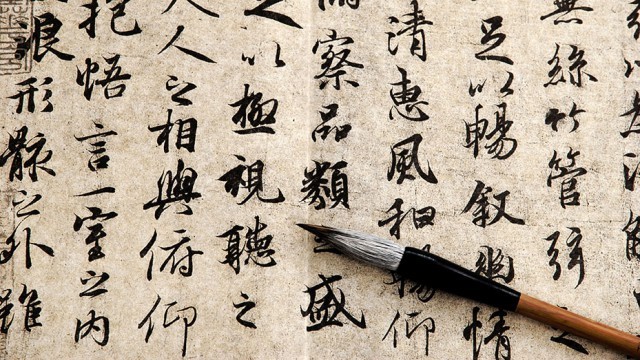 無絲竹管弦之
足以暢叙幽情
清惠風和暢仰
察品類盛
以極視聽之
人之相與俯仰
抱悟言一室之內
浪形骸之外雖